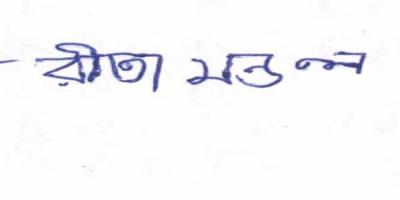 রীতা মন্ডল